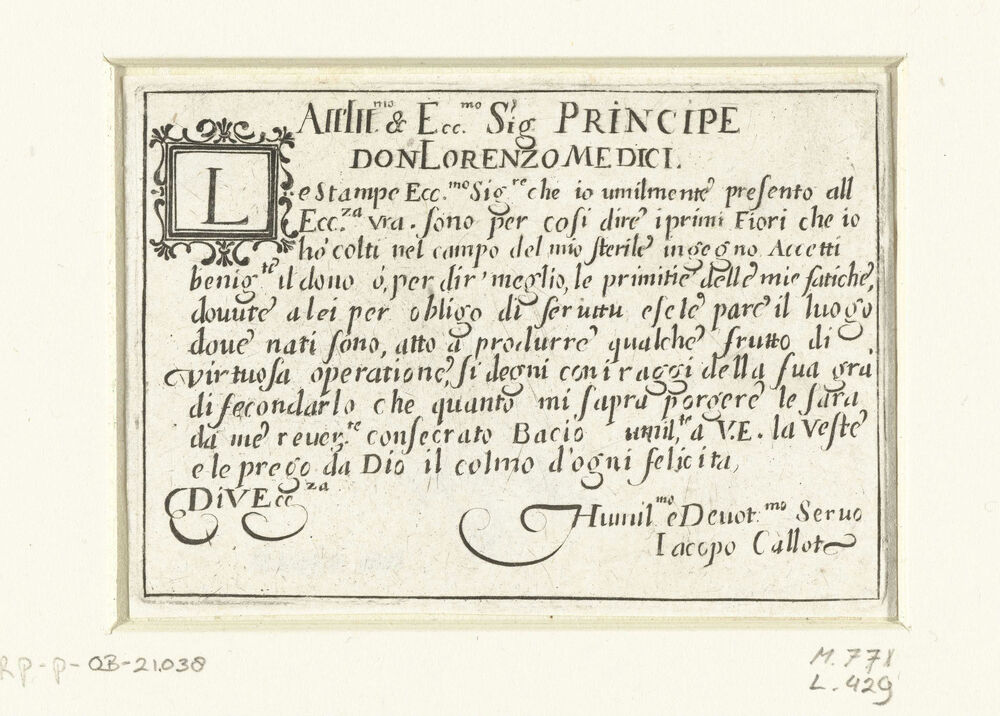 All Ill.mo & Ecc.mo Sig PRINCIPE
DON LORENZO MEDICI.
Le Stampe Ecc.mo Sig.re che io umilmente presento all
Ecc.za vra. sono per cosi dire i primi Fiori che io
ho colti nel campo del mio sterile ingegno. Accetti
benig.te il dono ó, per dir' meglio, le primitie delle mie fatiche,
dovute a lei per obligo di seruitu e se le pare il luogo
doue nati sono, atto a produrre qualche frutto di
virtuosa operatione, si degni con i raggi della sua grá
di fecondarlo che quanto mi sapra porgere le sara
da me reuer.te consecrato Bacio umil.te a V.E. la Veste
e le prego da Dio il colmo d'ogni felicita,
Di V Ecc.za
Humil.mo e Deuot.mo Seruo
Iacopo Callot
RP-P-OB-21.038
M. 771
L. 429